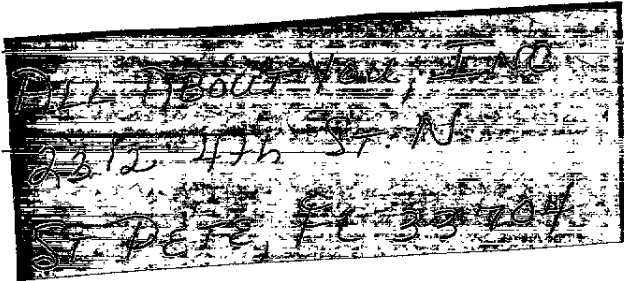 All About You, INC
2212 4th St. N
St Pete, FL 33704